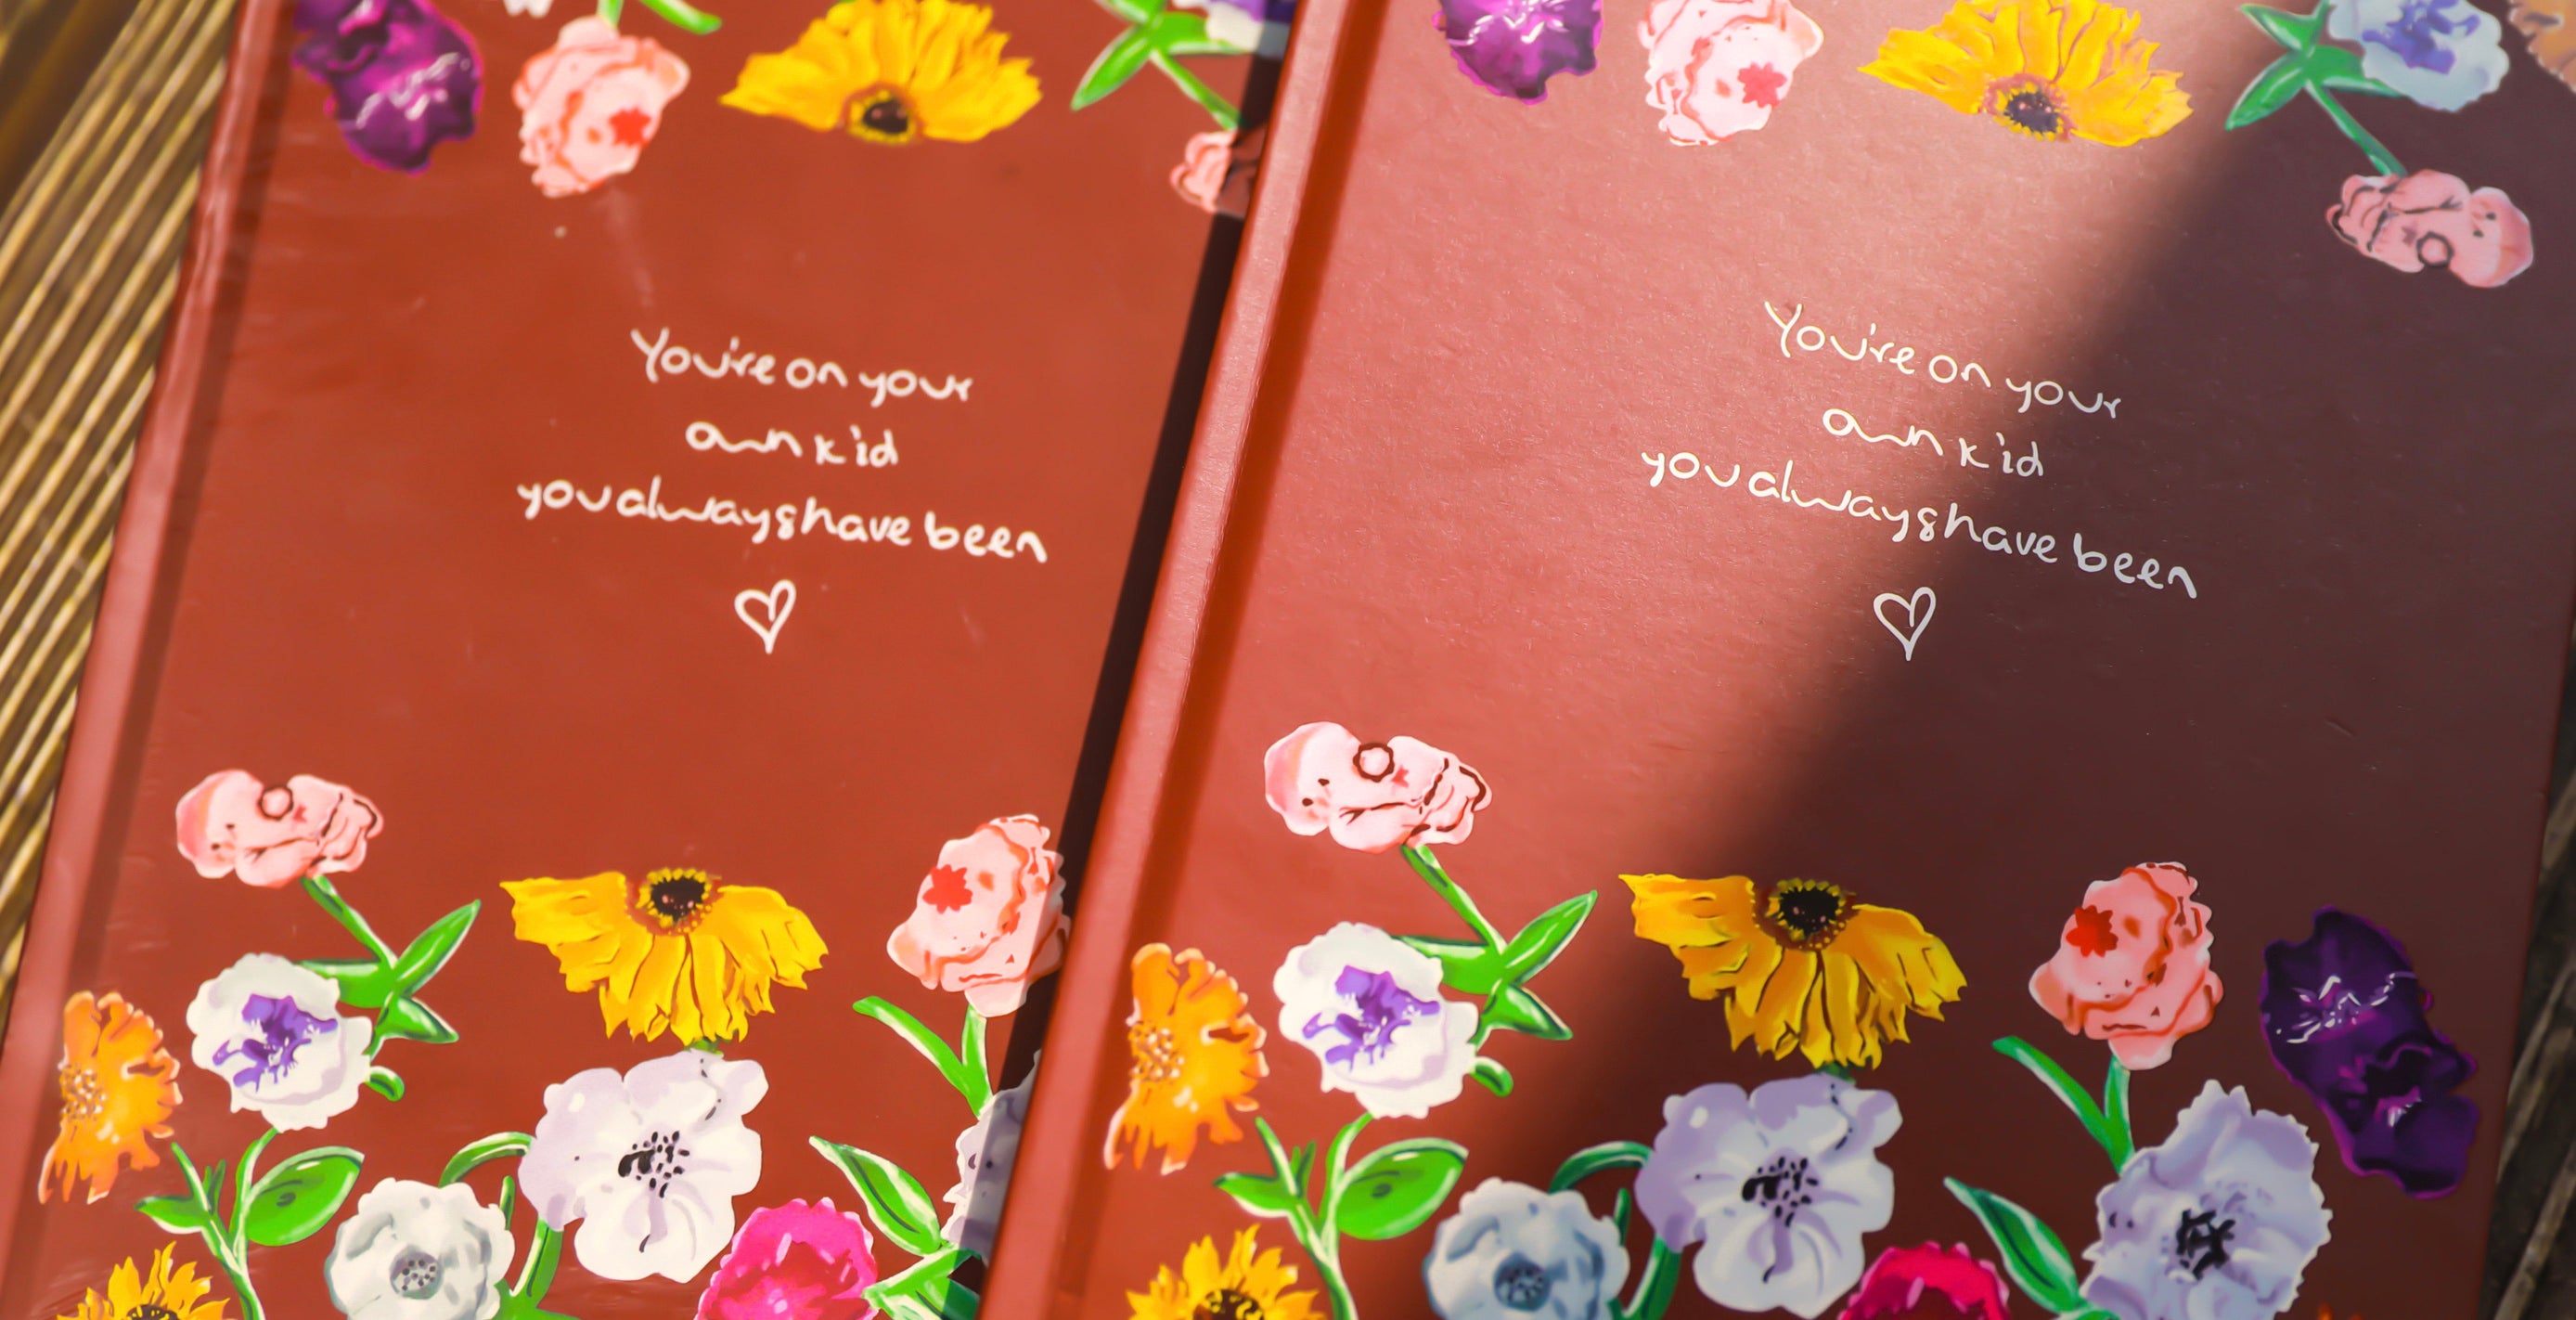 You're on your
own kid
you always have been
You're on your
own kid
you always have been